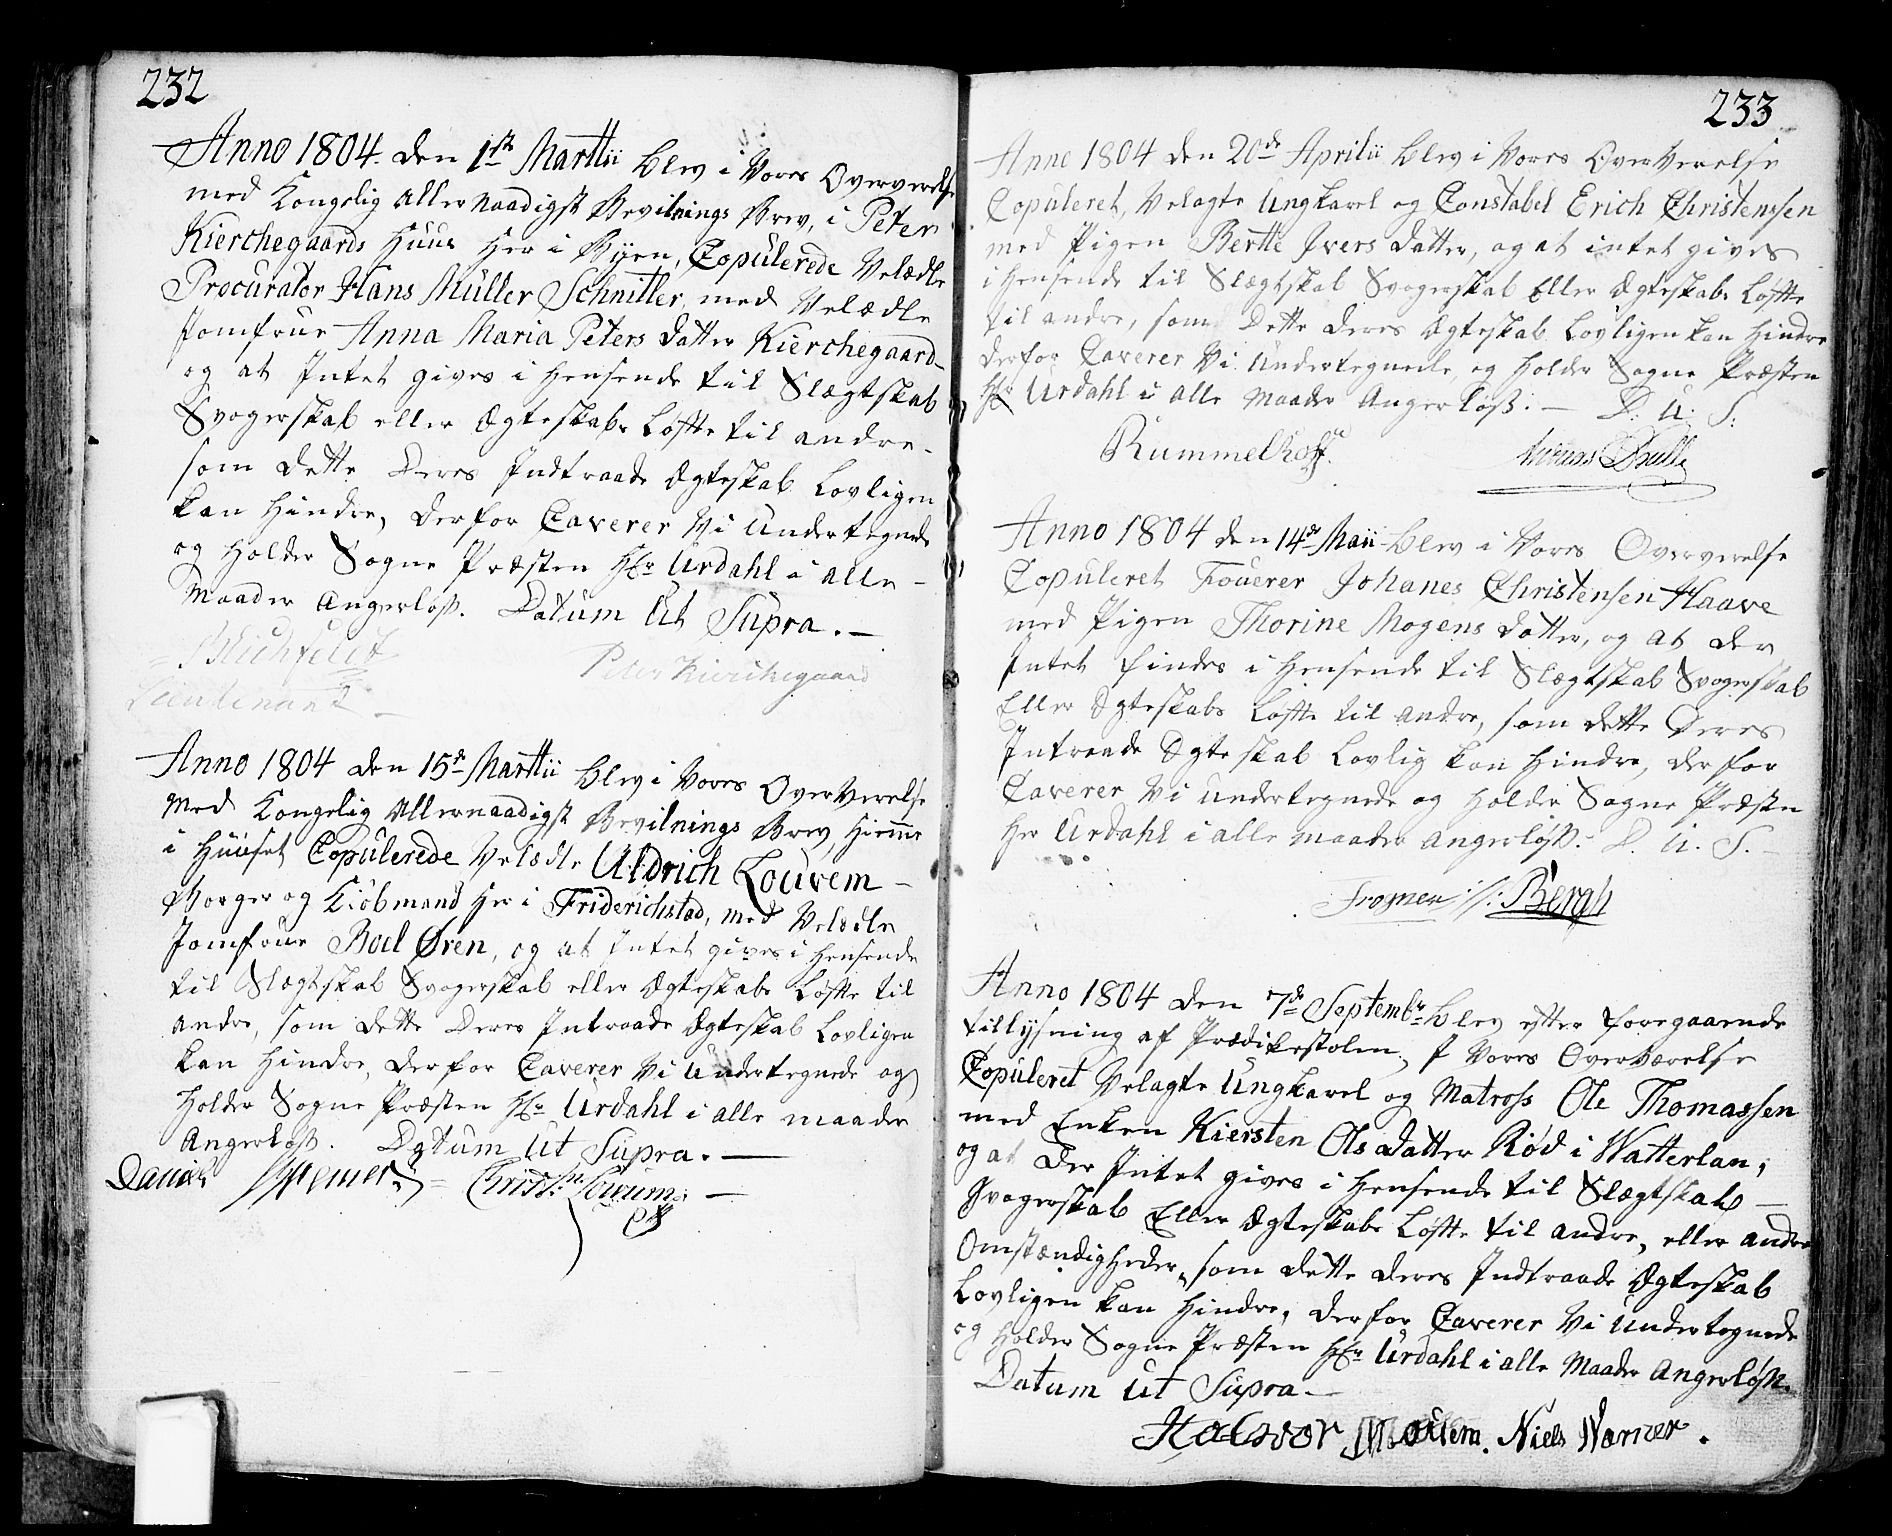 232
Anno 1804 den 1ste Martii blev i Vores Oververelse
med Kongelig Allernaadigst Bevilnings Brev, i Peter
Kierchegaards Huus her i Byen, Copulerede Velædle
Procurator Hans Müller Schnitler, med Velædle
Jomfrue Anna Maria Peters Datter Kierchegaard
og at Intet gives i Hensende til Slægtskab
Svogerskab eller Ægteskabs Løfte til andre
som dette Deres Indtraade Ægteskab Lovligen
kan Hindre, derfor Caverer Vi Undertegnede
og Holder Sogne Præsten Hr Urdahl i alle
Maader Angerløß. Datum Ut Supra.
Peter Kierchegaard
Lieutenant
Anno 1804 den 15de Martii blev i Vores OverVerelse
Med Kongelig Allernaadigst Bevilnings Brev, Hiemme
i Huuset Copulerede Velædle Uldrich Lourem
Borger og Kiøbmand her i Friderichstad, med Velædle
Jomfrue Boel Øren, og at Intet gives i Hensende
til Slægtskab Svogerskab eller Ægteskabs Løfte til
andre, som dette Deres Intraade Ægteskab Lovligen
kan Hindre, derfor Caverer Vi Undertegnede og
Holder Sogne Præsten Hr Urdahl i alle maader
Angerløß. Datum Ut Supra.
Daniel
233
Anno 1804 den 20de Aprilii blev i Vores OverVerelse
Copuleret, Velagte Ungkarel og Constabel Erich Christenssen
med Pigen Berthe Ivers Datter, og at intet gives
i Hensende til Slægtskab Svogerskab Eller Ægteskabs Løfte
til andre, som Dette Deres Ægteskab Lovligen kan Hindre
derfor Caverer Vi Undertegnede, og Holder Sogne Præsten
Hr Urdahl i alle Maader Angerløß. D. U. S:
Rummelhoff.
Anno 1804 den 14de Maii blev i Vores Oververelse
Copuleret Fouerer Johanes Christensen Haave
med Pigen Thorine Mogens Datter, og at der
Intet findes i Hensende til Slægtskab Svogerskab
Eller Ægteskabs Løfte til andre, som dette Deres
Intraade Ægteskab Lovlig kan Hindre, derfor
Caverer Vi undertegnede og Holder Sogne Præsten
Her Urdahl i alle maader Angerløß. D. U. S.
Bergh
Anno 1804 Den 7de Septembr blev efter foregaaende
tillysning af Prædikestolen, I Vores Overværelse
Copuleret Velagte Ungkarel og Matross Ole Thomassen
med Enken Kiersten Ols Datter Rød i Watterlan,
og at der Intet gives i Hensende til Slægtskab
Svogerskab Eller Ægteskabs Løfte til andre, eller andre
Omstændigheder, som dette deres Indtraade Ægteskab
Lovligen kan Hindre, derfor Caverer Vi Undertegnede
og Holder Sogne Præsten Hr Urdahl i alle Maader Angerløß.
Datum Ut Supra
Halvor Niels Warner.